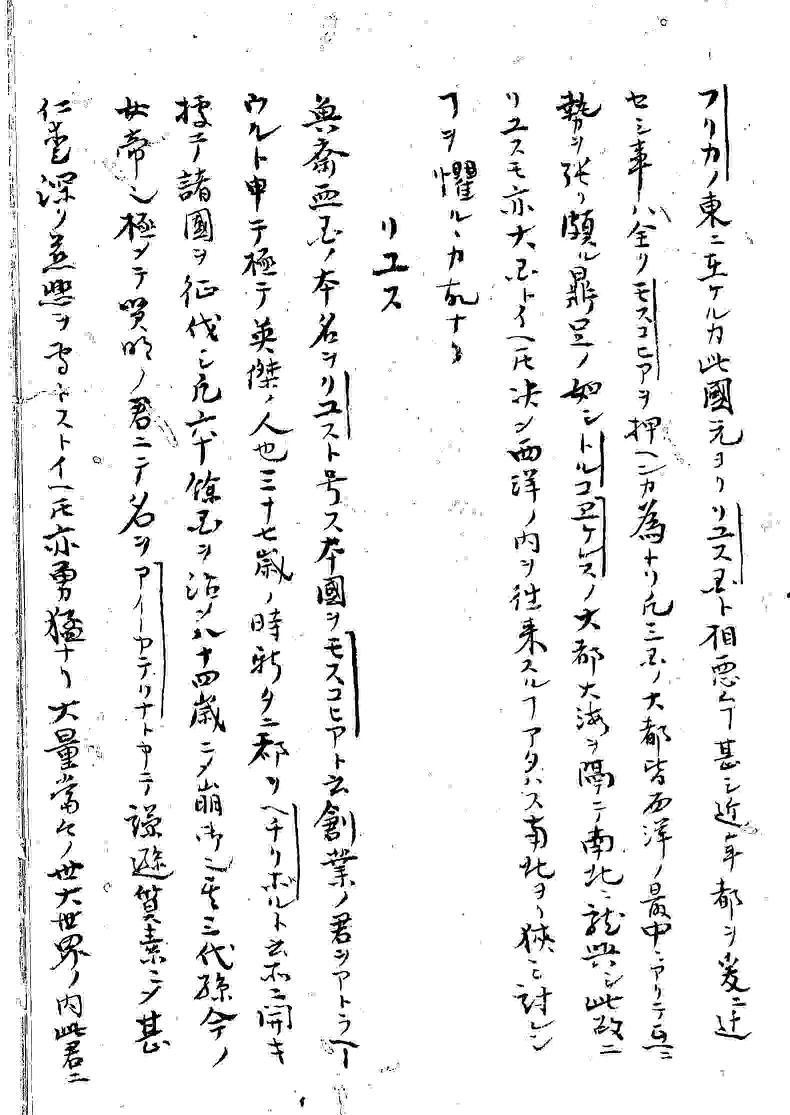 フリカノ東ニ在ケルカ此國元ヨリリユス国ト相悪ムヿ甚シ近年都ヲ爰ニ辻
セシ事ハ全クモスコヒアヲ押ヘンカ為ナリ凡三国ノ大都皆西洋ノ最中ニアリテ互ニ
勢ヲ張リ頗ル鼎足ノ如シトルコ ノ大都大海ヲ隔テ南北ニ龍興シ此故ニ
リユスモ亦大国トイヘ𪜈决シ西洋ノ内ヲ往来スルヿアタハス南北ヨリ狹ミ討レン
ヿヲ懼ルヽカ故ナリ
リユス
奥斎亜国ノ本名ヲリユスト号ス本國ヲモスコヒアト云創業ノ君ヲアトラヘ
ウルト申テ極テ英傑ノ人也三十七歳ノ時新タニ都ヲヘチリボルト云所ニ開キ
據テ諸國ヲ征伐シ凡六十餘国ヲ治メ八十四歳ニメ崩御シ其三代孫今ノ
女帝シ極メテ賢明ノ君ニテ名ヲアイーカテリナト申テ謙遜質素ニメ甚
仁愛深ク慈愍ヲ専トストイヘ𪜈亦勇猛ナリ大量當今ノ世大世界ノ内此君ニ